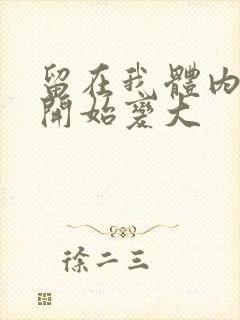 留在我體內
開始變大
徐二三